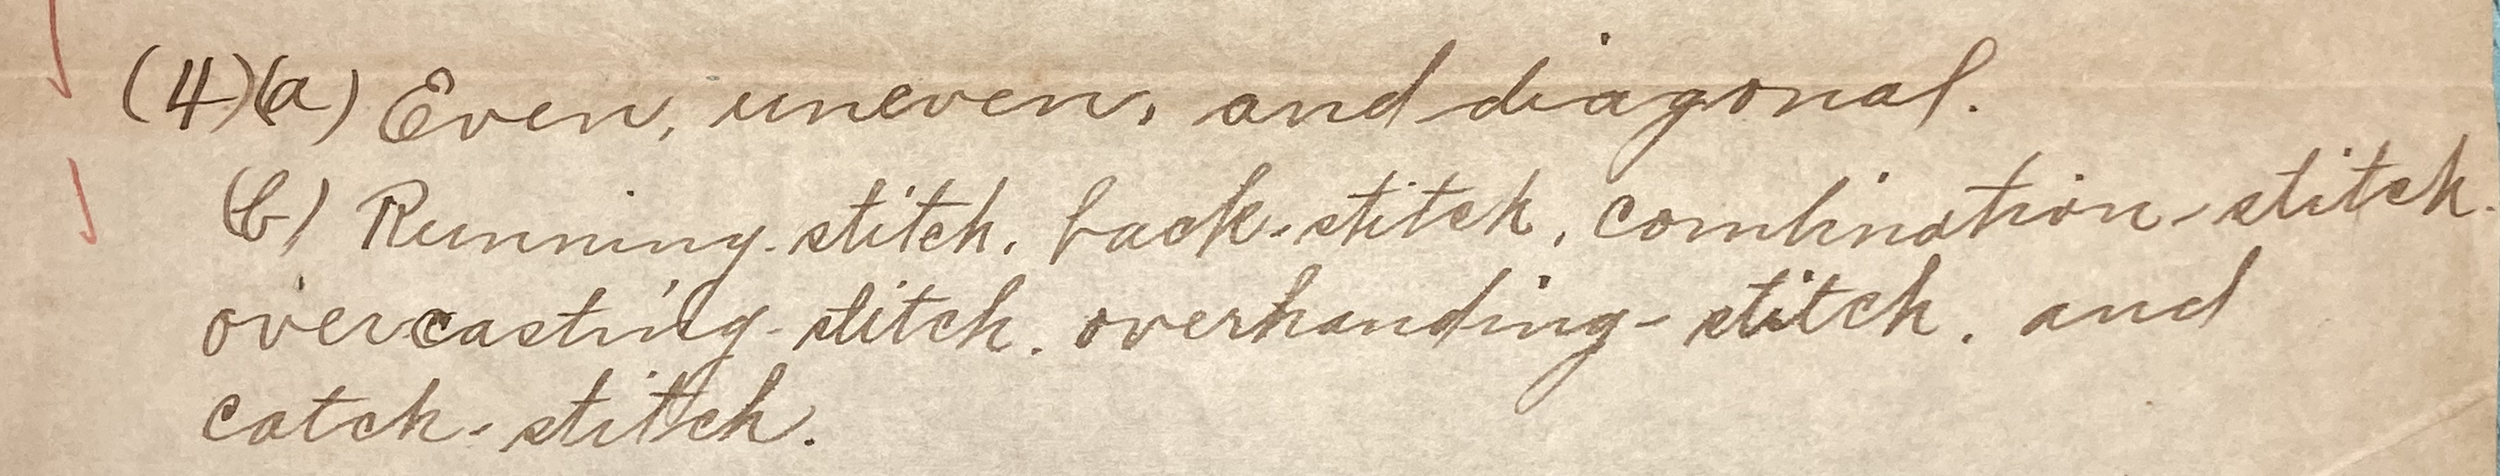 (4)(a) Even, uneven, and diagonal.
(b) Running-stitch, back-stitch, combination-stitch.
overcasting-stitch. overhanding-stitch, and
catch-stitch.